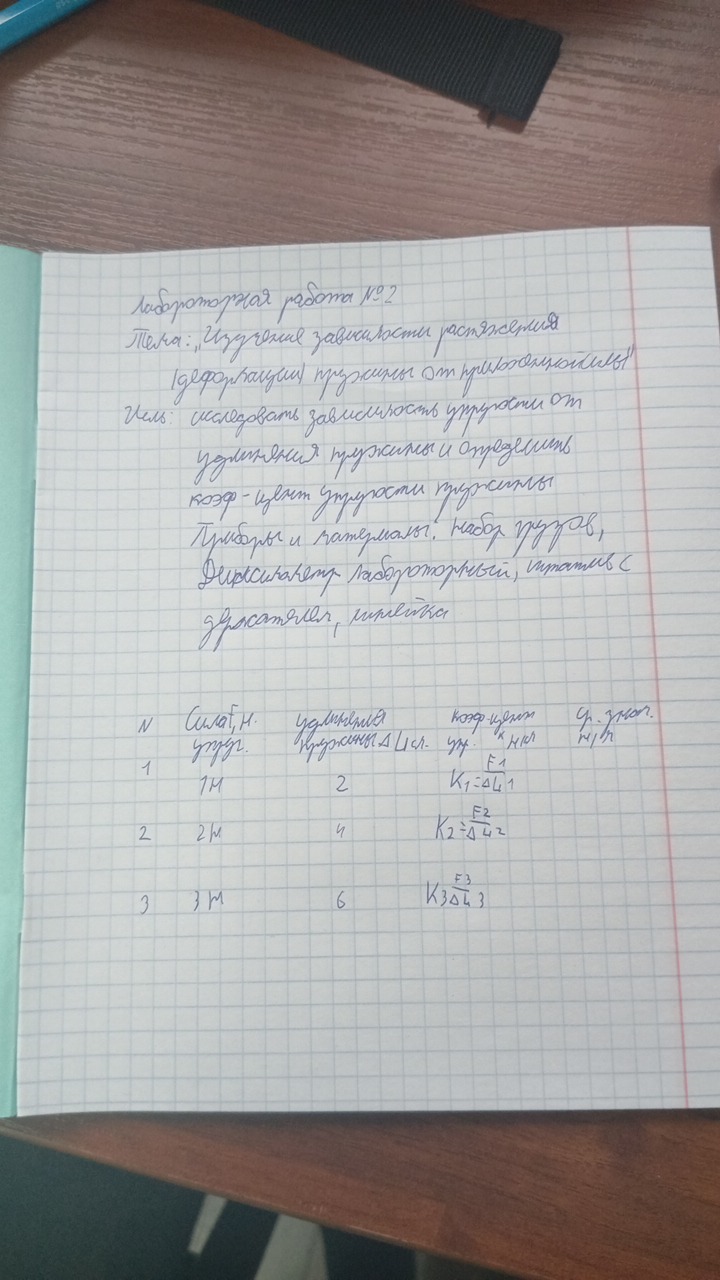 Лабороторная работа №2
Тема: „Изучение зависимости растяжения
(деформации) пружины от приложенной силы"
Цель: исследовать зависимость упругости от
удлинения пружины и определить
коэф-цент упругости пружины
Приборы и материалы: набор грузов,
лабороторный, штатив с
держателем, линейка
N Сила F, Н. удлинения коэф-цент ср. знач.
упруг. пружины Δ L см. упр. к н/м н/м
1 1Н 2 K1=F1/ΔL1
2 2Н 4 K2=F2/ΔL2
3 3Н 6 K3 F3/ΔL3